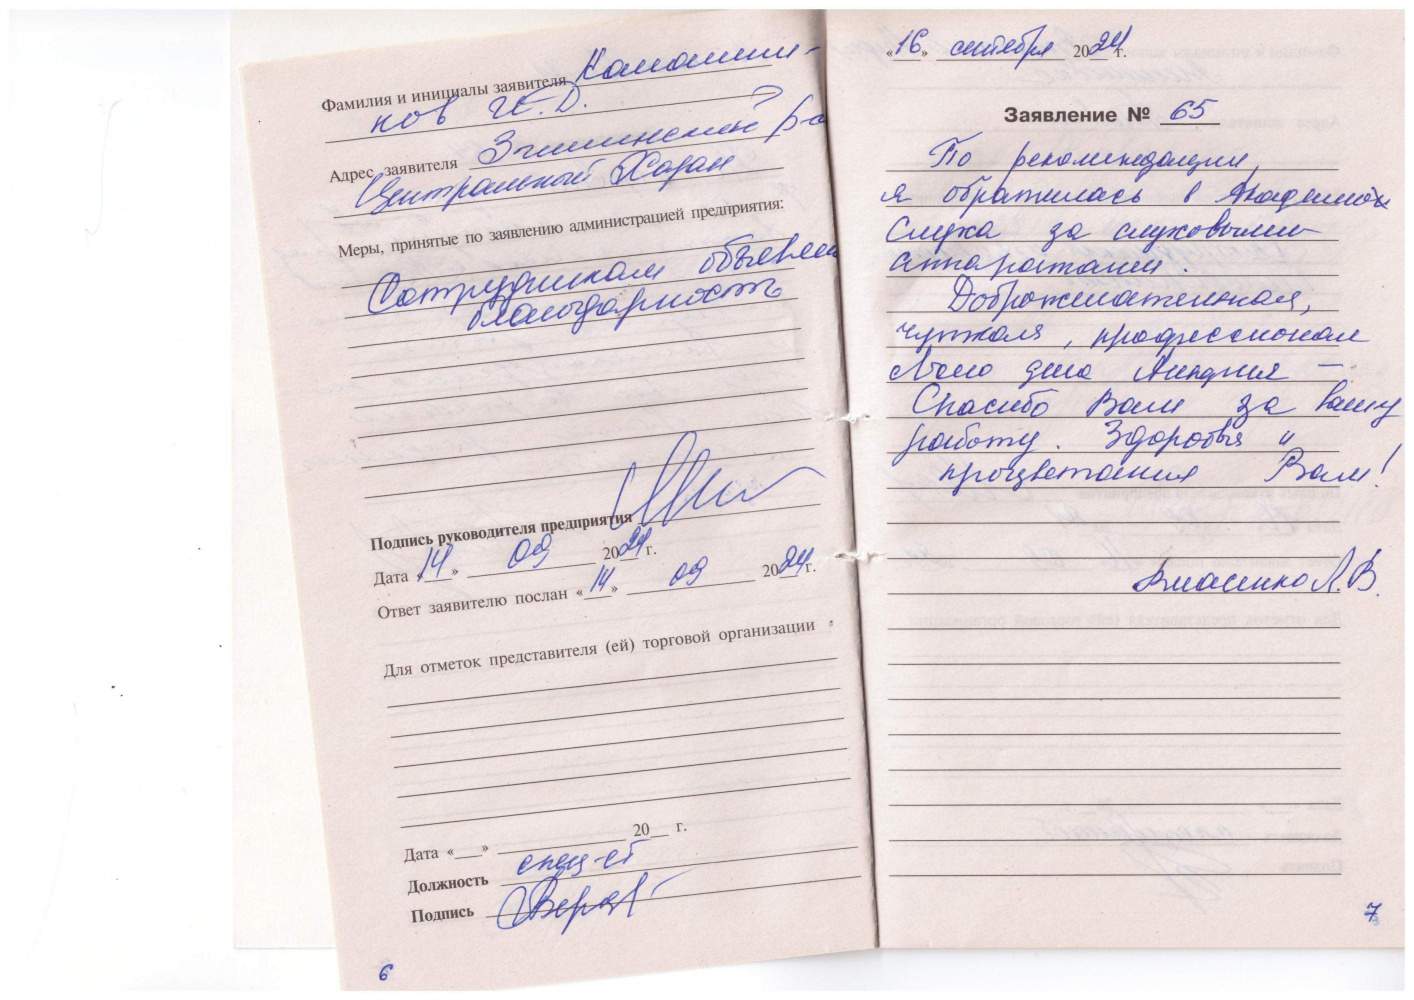 Фамилия и инициалы заявителя
нов И.Д.
Адрес заявителя
Центральный Хазан
Меры, принятые по заявлению администрацией предприятия:
Сотрудникам объявлена
благодарность
Подпись руководителя предприятия
Дата «14» 09 2024 г.
Ответ заявителю послан «14» 09 2024 г.
Для отметок представителя (ей) торговой организации
Дата «___» ______ 20__ г.
Должность спец-ст
Подпись
6
«16» сентября 2024 г.
Заявление № 65
По рекомендации,
я обратилась в Академию
Слуха за слуховыми
аппаратами.
Доброжелательная,
чуткая, профессионал
своего дела
Спасибо Вам за вашу
работу. Здоровья и
процветания Вам!
Власенко Л.В.
7